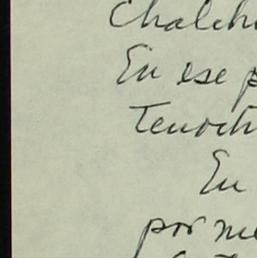 Chalchi
En ese p
Tenoch
En
por me